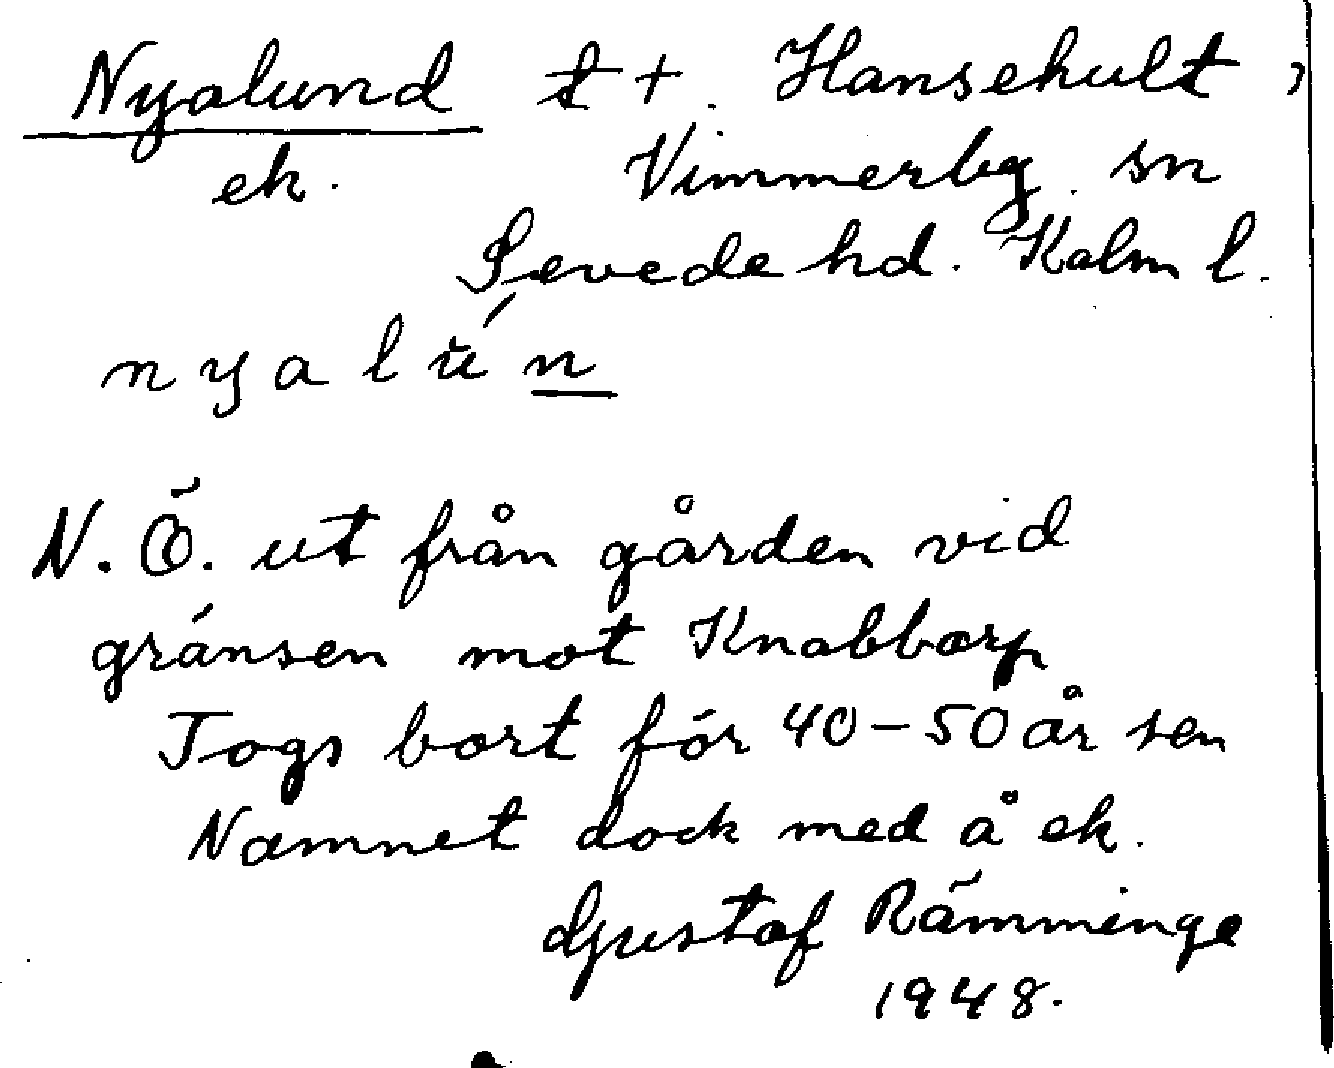 Nyalund t +. Hansehult,
ek. Vimmerby sn
Sevede hd. Kalm l.
n y a l ú n
N. Ö. ut från gården vid
gränsen mot Knabbarp
Togs bort för 40-50 år sen
Namnet dock med å ek.
Gustaf Rämminge
1948.